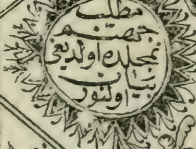 مطلب
جهنم
نجلده اولدیغی
بیان
اولنور